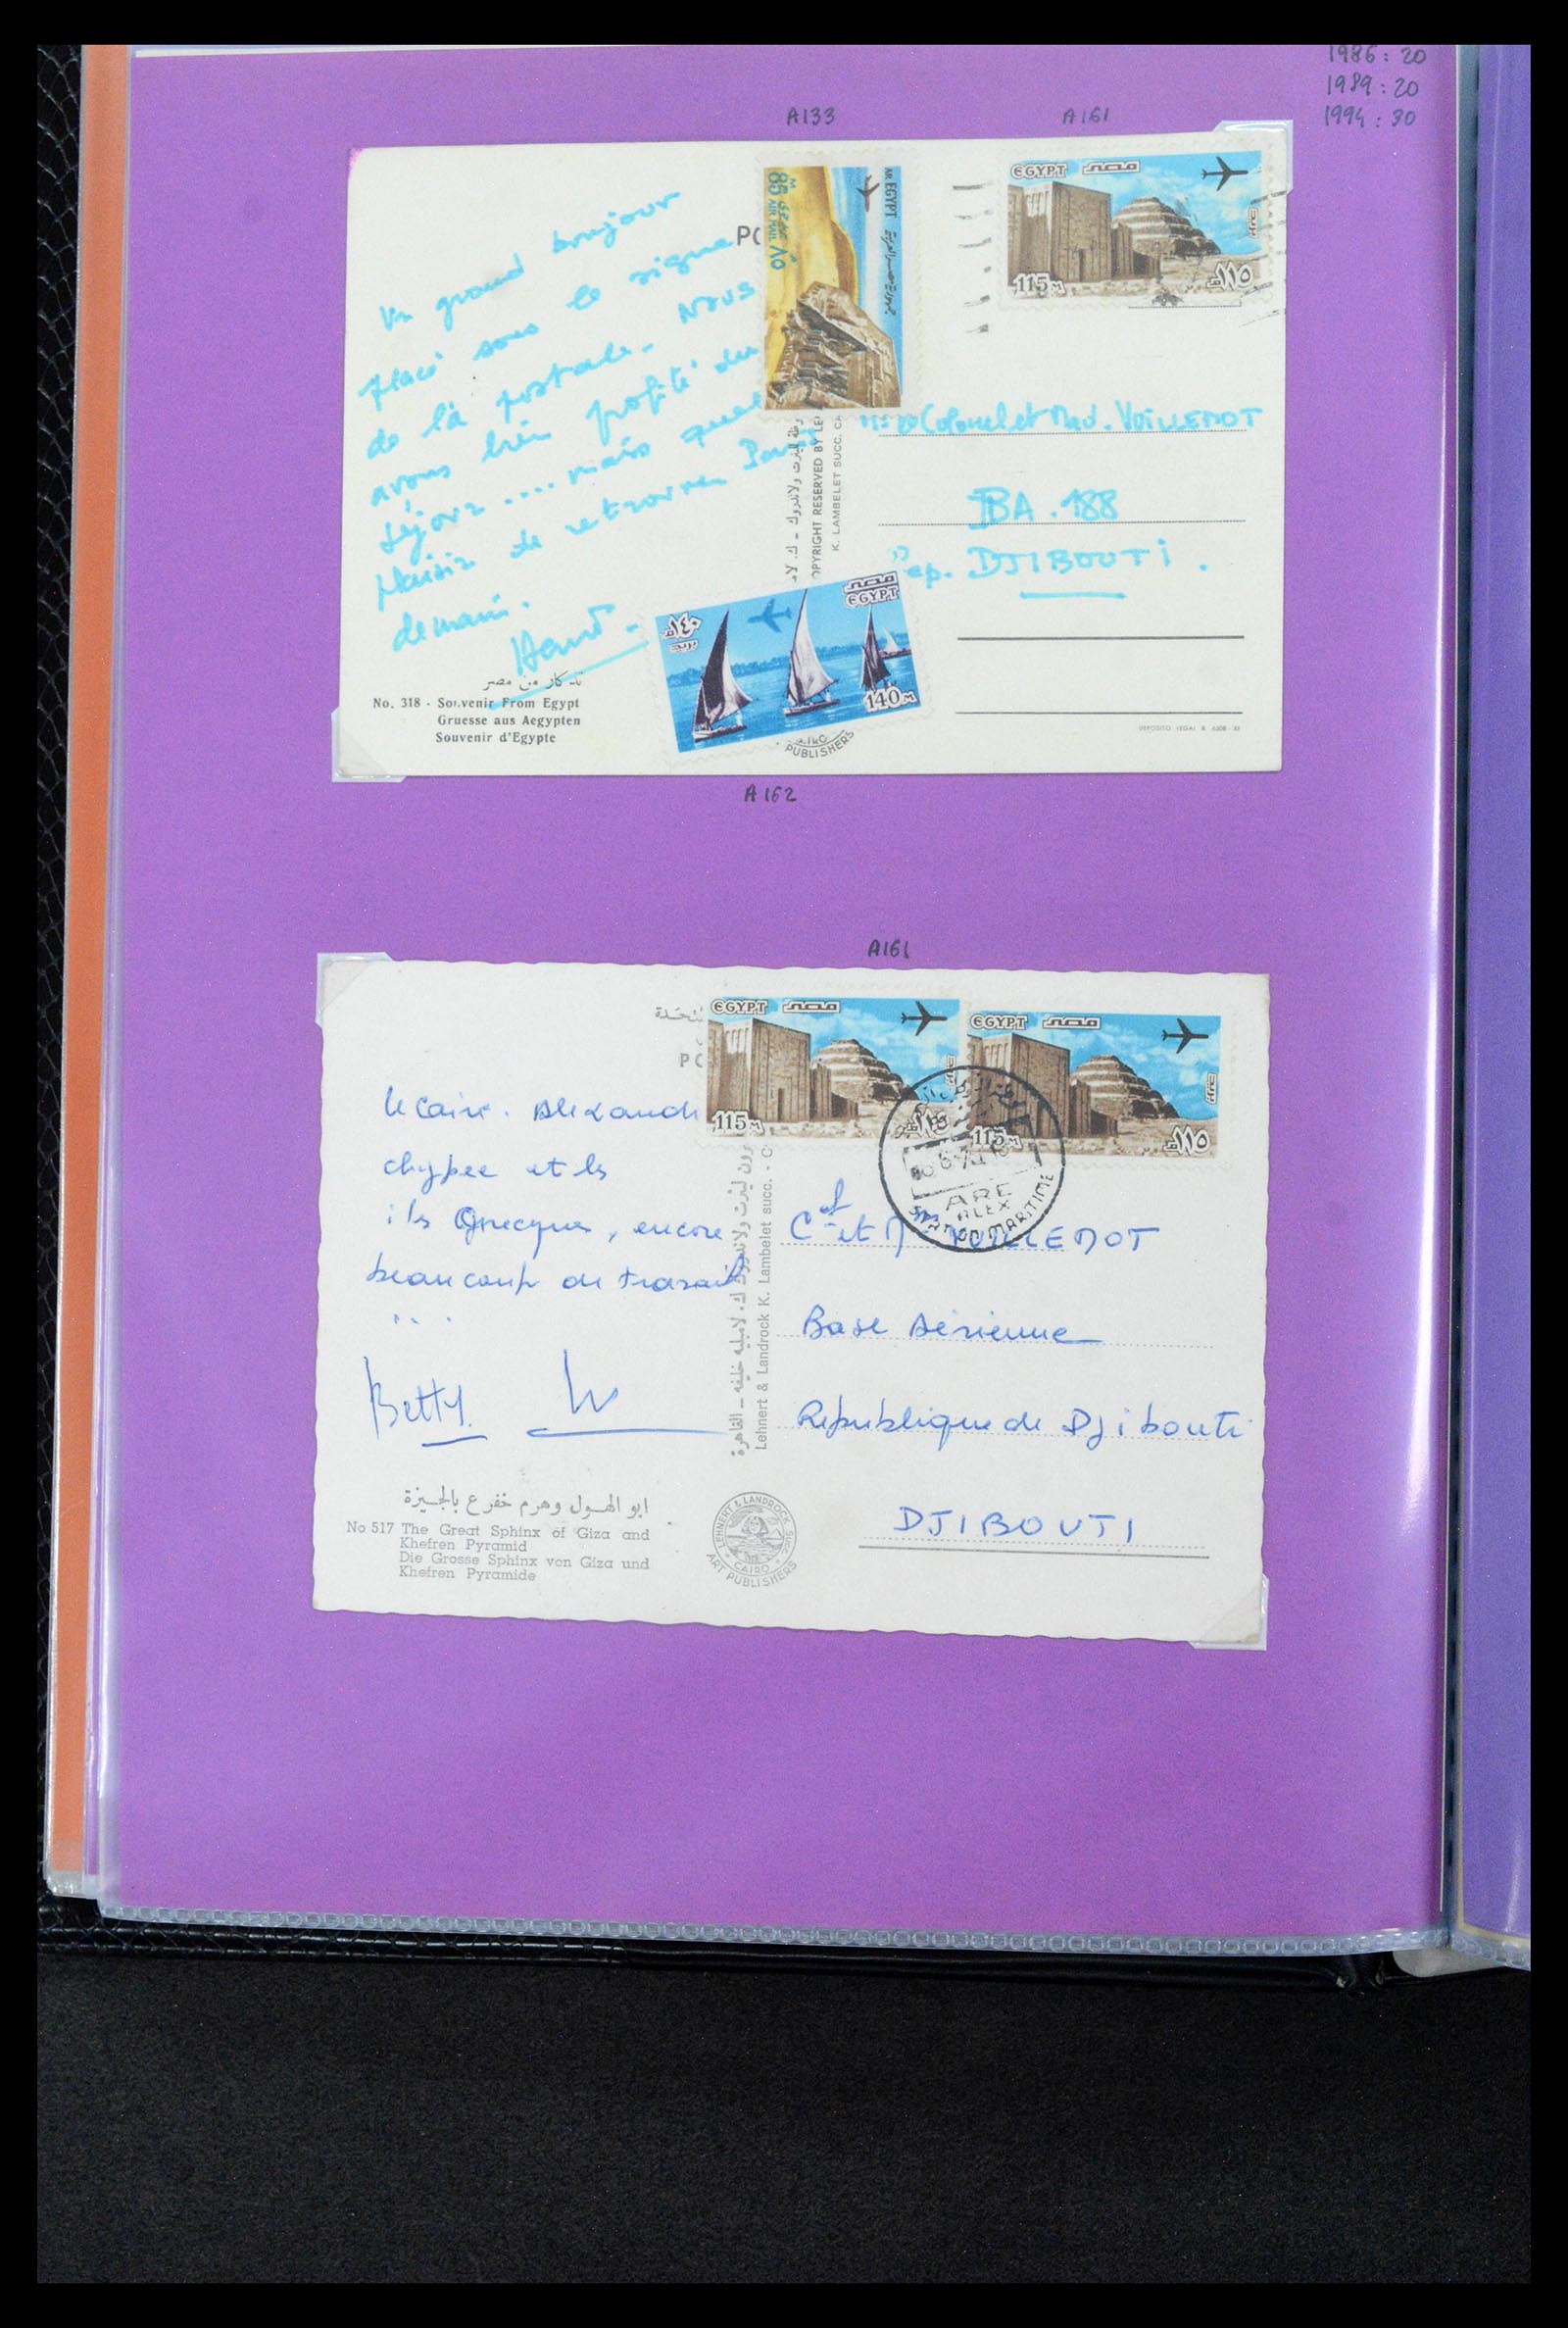 1986 : 20
1989 : 20
1994 : 30
A133
A161
EGYPT مصر
115 M ١١٥
AR EGYPT جمهورية مصر العربية
85 M AIR MAIL ٨٥
Un grand bonjour
placé sous le signe
de la postale. Nous
avons bien profité du
séjour .... mais quel
plaisir de retrouver Paris
demain.
PO
COPYRIGHT RESERVED BY LE
K. LAMBELET SUCC. CA
Colonel et Mad. VUILLEMOT
BA. 188
Rep. DJIBOUTI.
مصر
EGYPT
١٤٠
بريد
140 M
تذكار من مصر
No. 318 - Souvenir From Egypt
Gruesse aus Aegypten
Souvenir d'Egypte
CAIRO
PUBLISHERS
DEPOSITO LEGAL B.
A 162
A161
المتحدة
PO
EGYPT مصر
115 M ١١٥
EGYPT مصر
115 M ١١٥
ARE
ALEX
STATION MARITIME
le Caire. Alexandri
chypre et les
iles Grecques, encore
beaucoup de travail
...
Betty.
لينرت ولاندروك ك. لامبليه خليفه - القاهرة
Lehnert & Landrock K. Lambelet succ. - C
Cel et M VUILLEMOT
Base Aérienne
Republique de Djibouti
DJIBOUTI
ابو الهول وهرم خفرع بالجيزة
No 517 The Great Sphinx of Giza and
Khefren Pyramid
Die Grosse Sphinx von Giza und
Khefren Pyramide
LEHNERT & LANDROCK SUCC.
CAIRO
ART PUBLISHERS